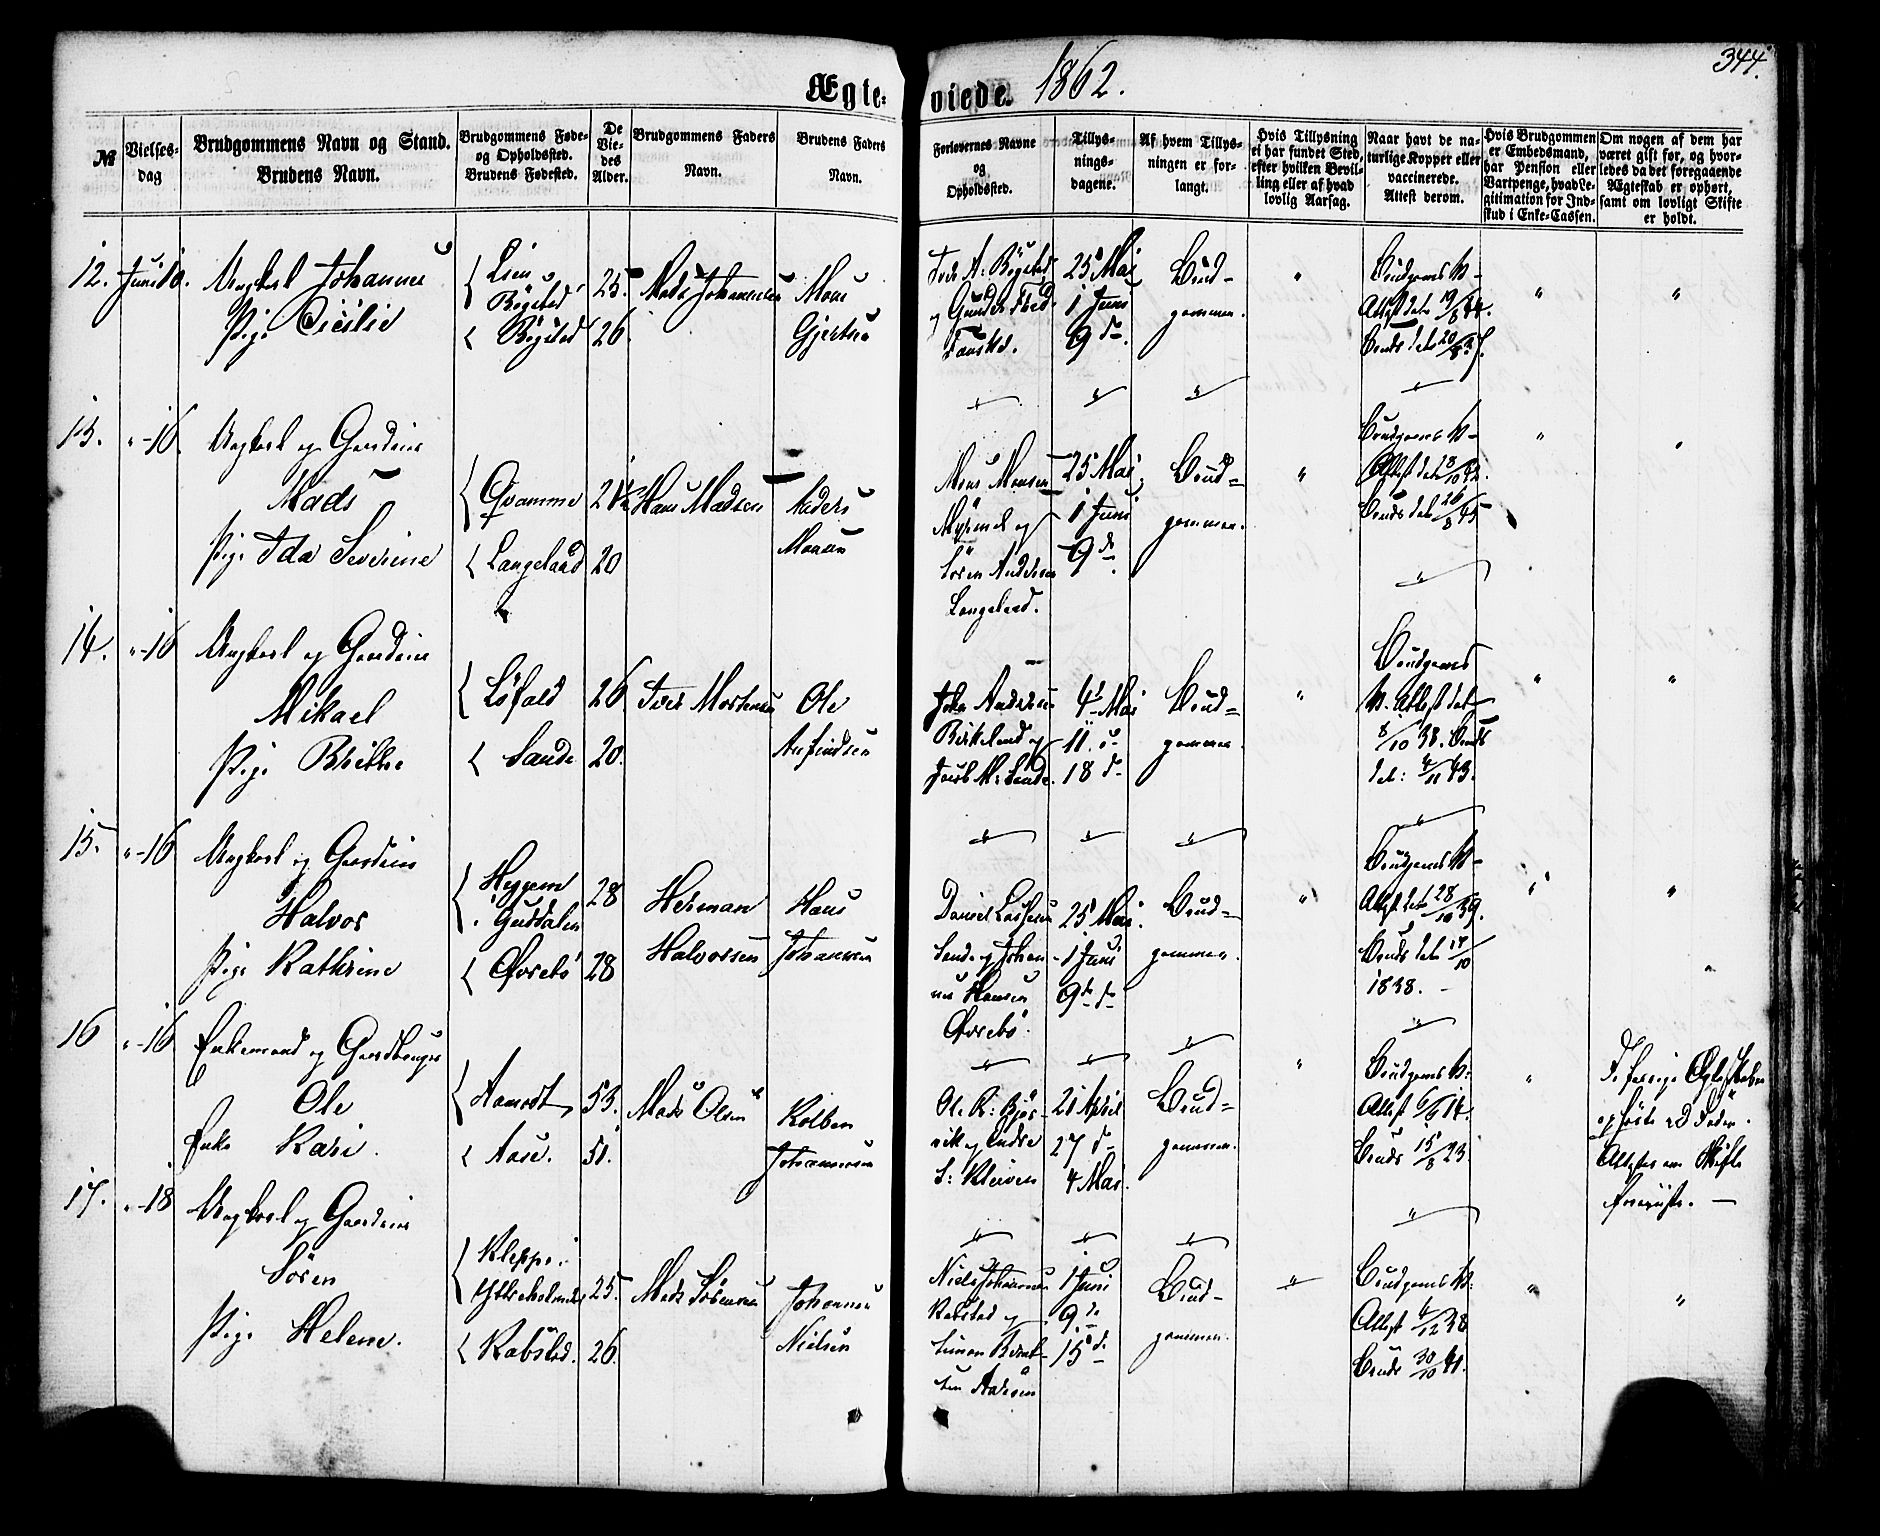 344.
Ægte- viede. 1862.
№
Vielses-
dag
Brudgommens Navn og Stand.
Brudens Navn.
Brudgommens Føde-
og Opholdssted.
Brudens Fødested.
De
Vie-
des
Alder.
Brudgommens Faders
Navn.
Brudens Faders
Navn.
Forlovernes Navne
og
Opholdssted.
Tillys-
nings-
dagene.
Af hvem Tillys-
ningen er for-
langt.
Hvis Tillysning
ei har fundet Sted,
efter hvilken Bevil-
ling eller af hvad
lovlig Aarsag.
Naar havt de na-
turlige Kopper eller
vaccinerede.
Attest derom.
Hvis Brudgommen
er Embedsmand,
har Pension eller
Vartpenge, hvad Le-
gitimation for Ind-
skud i Enke-Cassen.
Om nogen af dem har
været gift før, og hvor-
ledes da det foregaaende
Ægteskab er ophørt,
samt om lovligt Skifte
er holdt.
12. Juni 10. Ungkarl Johannes
Pige Cicilie
Bögstad
Bögstad
25.
26.
Mads Johannesen
Mons
Gjertsen
25 Mai
1 Juni
9 d.
Brud-
gommen.
Brudgoms V-
Attest dat. 19/8
Bruds dat. 20/8
13. "-16. Ungkarl og Gaardeier
Mads
Pige Ida Severine
Qvamme
Langeland
21½
20
Hans Madsen
Anders
Monsen
Mons Monsen
Myrmel og
Sören Andersen
Langeland.
25 Mai
1 Juni
9 d.
Brud-
gommen.
Brudgoms V-
Attest dat. 28/10 42.
Bruds dat. 26/8 45
14. "-16 Ungkarl og Gaardeier
Mikael
Pige Brithe
Löfald
Sande
26.
20.
Iver Mortensen
Ole
Anfindsen
Andersen
Birkeland og
Jacob M: Sande.
4 Mai
11. d.
18 d.
Brud-
gommen.
Brudgoms
V. Attest dat.
8/10 38. Bruds
dat: 4/11 43.
15. "-16 Ungkarl og Gaardeier
Halvor
Pige Kathrine
Guddalen
Övrebö
28
28
Herman
Halvorsen
Hans
Johannesen
Daniel Lassesen
Sande og Johan-
nes Hansen
Övrebö.
25 Mai.
1 Juni
9de d.
Brud-
gommen.
Brudgoms V-
Attest dat. 28/10 39.
Bruds dat. 14/10
1838.
16 "-16 Enkemand og Gaardbruger
Ole
Enke Kari.
Aase.
53.
51.
Mads Olsen
Kolben
Johannesen
21 April
27 d.
4 Mai.
Brud-
gommen.
Brudgoms V:
Attest 6/6 14.
Bruds 15/8 23.
De forrige Ægteskaber
ophörte ved Döden.
Attester om Skifte
foreviste.
17. "-18 Ungkarl og Gaardeier
Sören
Pige Helene.
Kleppe
Ytreholmedal
Rabstad.
25.
26.
Mads Sörensen
Johannes
Nielsen
Niels Johannesen
Rabstad og
Simon Bernt-
sen
1 Juni
9. d.
15 d.
Brud-
gommen.
Brudgoms V:
Attest 4/12 38
Bruds 30/10 41.